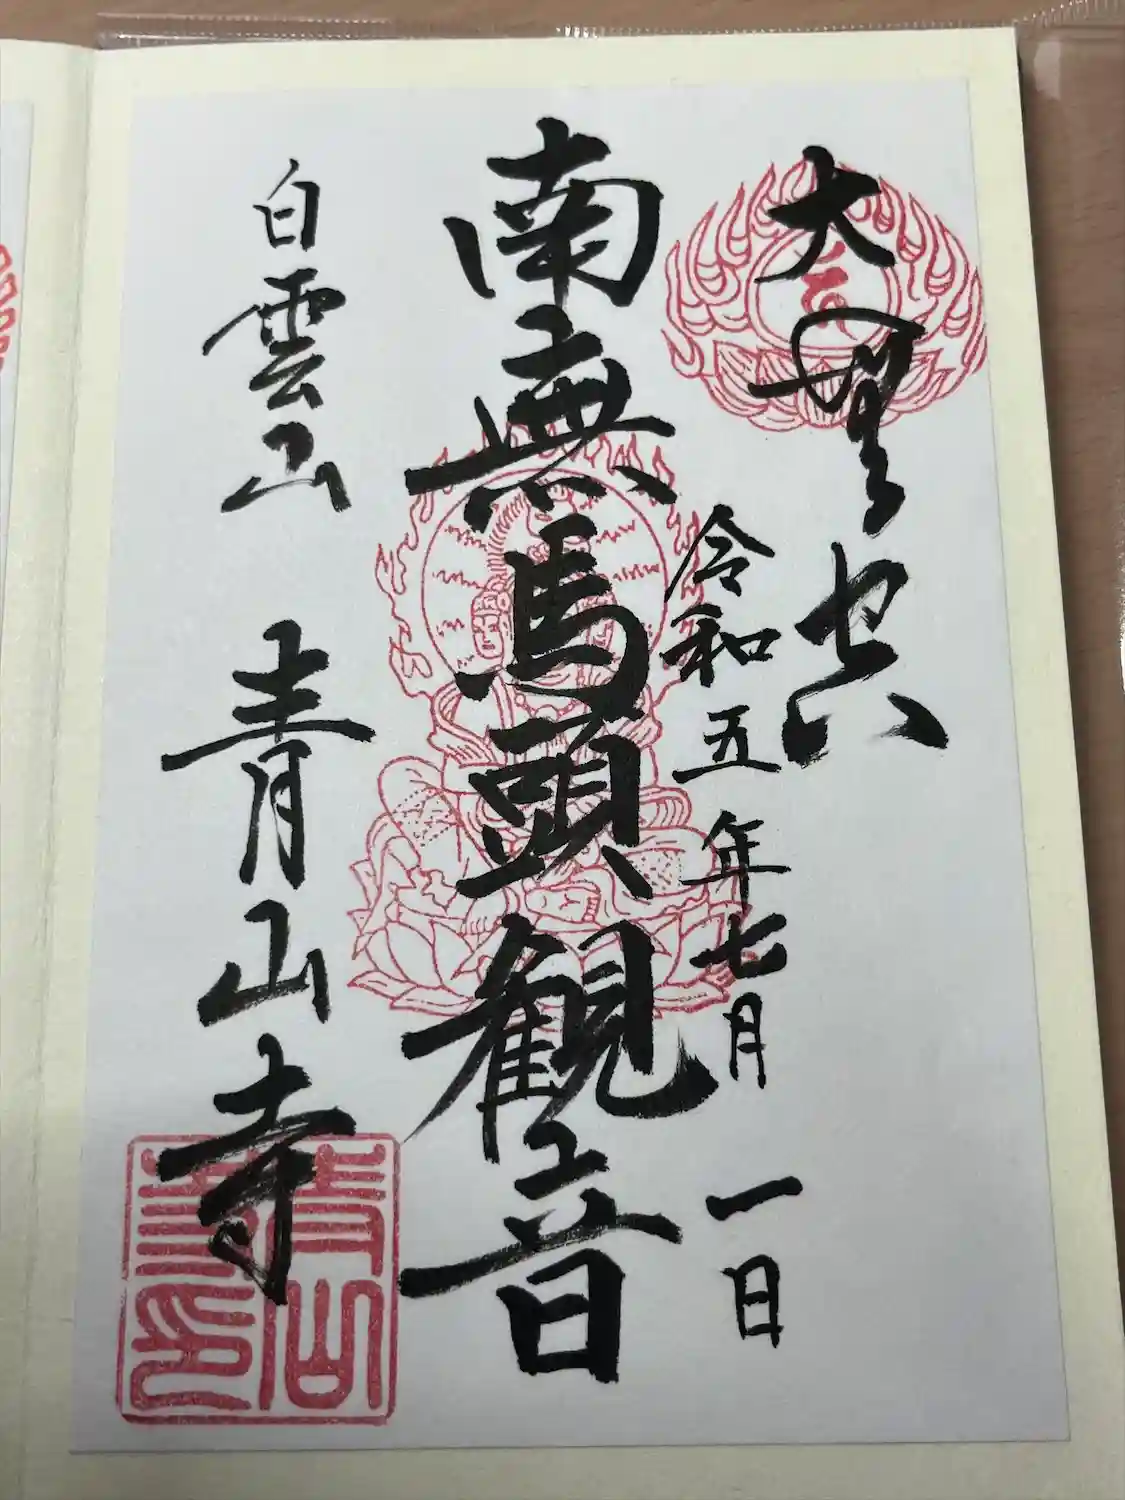 大
令和五年七月一日
南無馬頭観音
白雲山 青山寺
青山寺印